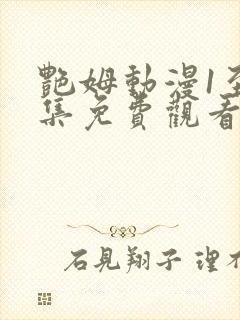 艷姆動漫1至
集免費觀看
石見翔子 理不